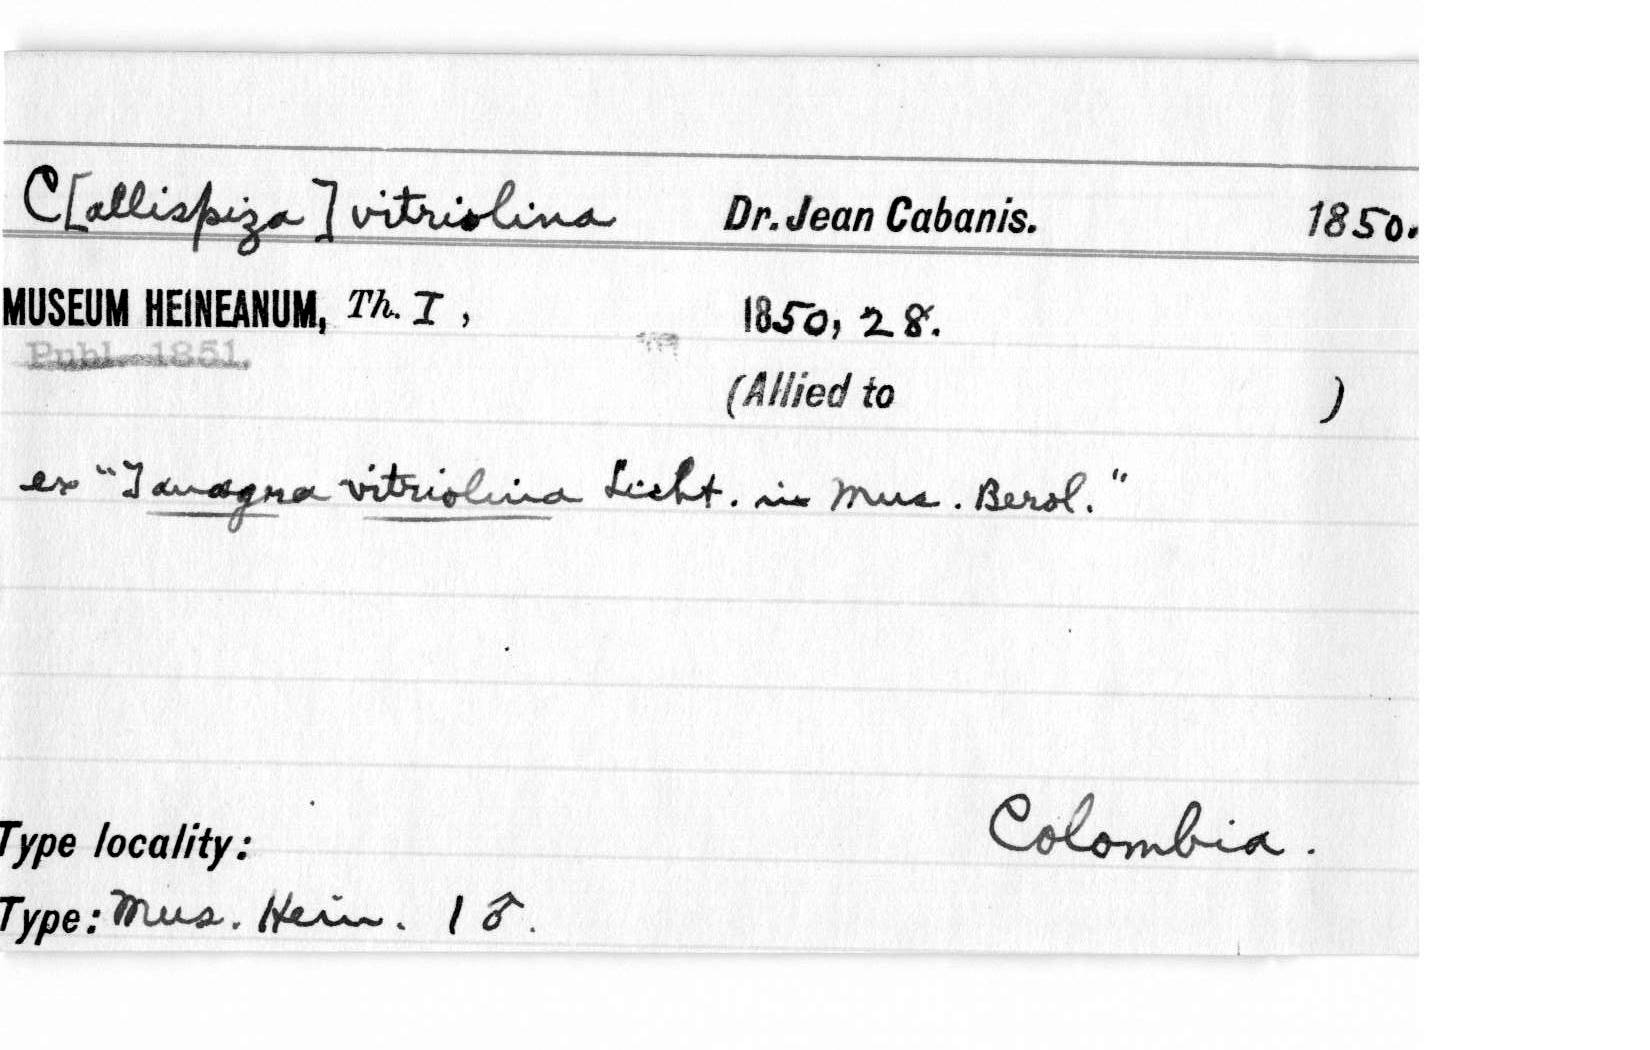 C[allispiza] vitriolina Dr. Jean Cabanis. 1850.
MUSEUM HEINEANUM, Th. I, 1850, 28.
Publ. 1851.
(Allied to )
ex "Tanagra vitriolina Licht. in Mus. Berol."
Type locality: Colombia.
Type: Mus. Hein. 1 ♂.